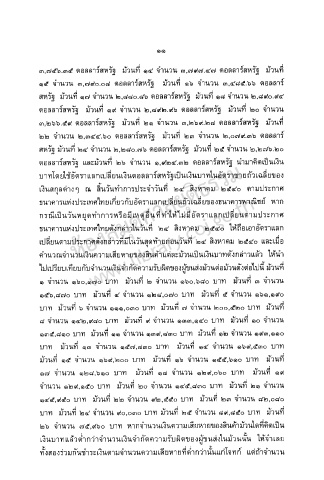 ๑๑
๓,๗๕๖.๓๕ ดอลลาร์สหรัฐ ม้วนที่ ๑๔ จำนวน ๓,๗๙๗.๔๗ ดอลลาร์สหรัฐ ม้วนที่
๑๕ จำนวน ๓,๗๙๐.๐๘ ดอลลาร์สหรัฐ ม้วนที่ ๑๖ จำนวน ๓,๔๘๕.๖๖ ดอลลาร์
สหรัฐ ม้วนที่ ๑๗ จำนวน ๒,๗๘๐.๘๖ ดอลลาร์สหรัฐ ม้วนที่ ๑๘ จำนวน ๒,๘๙๐.๙๔
ดอลลาร์สหรัฐ ม้วนที่ ๑๙ จำนวน ๒,๘๙๒.๙๖ ดอลลาร์สหรัฐ ม้วนที่ ๒๐ จำนวน
๓,๒๖๖.๕๙ ดอลลาร์สหรัฐ ม้วนที่ ๒๑ จำนวน ๓,๒๖๙.๒๘ ดอลลาร์สหรัฐ ม้วนที่
๒๒ จำนวน ๒,๓๔๔.๖๐ ดอลลาร์สหรัฐ ม้วนที่ ๒๓ จำนวน ๒,๐๗๙.๓๖ ดอลลาร์
สหรัฐ ม้วนที่ ๒๔ จำนวน ๒,๒๘๐.๗๖ ดอลลาร์สหรัฐ ม้วนที่ ๒๕ จำนวน ๒,๒๗๖.๒๐
ดอลลาร์สหรัฐ และม้วนที่ ๒๖ จำนวน ๑,๙๒๔.๓๒ ดอลลาร์สหรัฐ นำมาคิดเป็นเงิน
บาทโดยใช้อัตราแลกเปลี่ยนเงินดอลลาร์สหรัฐเป็นเงินบาทในอัตราขายถัวเฉลี่ยของ
เงินสกุลต่างๆ ณ สิ้นวันทำการประจำวันที่ ๒๔ สิงหาคม ๒๕๔๐ ตามประกาศ
ธนาคารแห่งประเทศไทยเกี่ยวกับอัตราแลกเปลี่ยนถัวเฉลี่ยของธนาคารพาณิชย์ หาก
กรณีเป็นวันหยุดทำการหรือมีเหตุอื่นที่ทำให้ไม่มีอัตราแลกเปลี่ยนตามประกาศ
ธนาคารแห่งประเทศไทยดังกล่าวในวันที่ ๒๔ สิงหาคม ๒๕๔๐ ให้ถือเอาอัตราแลก
เปลี่ยนตามประกาศดังกล่าวที่มีในวันสุดท้ายก่อนวันที่ ๒๔ สิงหาคม ๒๕๔๐ และเมื่อ
คำนวณจำนวนเงินความเสียหายของสินค้าแต่ละม้วนเป็นเงินบาทดังกล่าวแล้ว ให้นำ
ไปเปรียบเทียบกับจำนวนเงินจำกัดความรับผิดของผู้ขนส่งม้วนต่อม้วนดังต่อไปนี้ ม้วนที่
๑ จำนวน ๑๖๐,๑๗๐ บาท ม้วนที่ ๒ จำนวน ๑๖๐,๖๘๐ บาท ม้วนที่ ๓ จำนวน
๑๕๖,๘๗๐ บาท ม้วนที่ ๔ จำนวน ๑๒๘,๐๗๐ บาท ม้วนที่ ๕ จำนวน ๑๖๑,๑๙๐
บาท ม้วนที่ ๖ จำนวน ๑๑๑,๐๓๐ บาท ม้วนที่ ๗ จำนวน ๒๐๐,๕๒๐ บาท ม้วนที่
๘ จำนวน ๑๔๒,๙๘๐ บาท ม้วนที่ ๙ จำนวน ๑๓๓,๑๔๐ บาท ม้วนที่ ๑๐ จำนวน
๑๓๕,๘๑๐ บาท ม้วนที่ ๑๑ จำนวน ๑๓๙,๘๓๐ บาท ม้วนที่ ๑๒ จำนวน ๑๙๓,๑๑๐
บาท ม้วนที่ ๑๓ จำนวน ๑๕๗,๘๓๐ บาท ม้วนที่ ๑๔ จำนวน ๑๖๙,๕๓๐ บาท
ม้วนที่ ๑๕ จำนวน ๑๖๙,๒๐๐ บาท ม้วนที่ ๑๖ จำนวน ๑๕๕,๖๑๐ บาท ม้วนที่
๑๗ จำนวน ๑๒๘,๖๑๐ บาท ม้วนที่ ๑๘ จำนวน ๑๒๙,๐๖๐ บาท ม้วนที่ ๑๙
จำนวน ๑๒๙,๑๕๐ บาท ม้วนที่ ๒๐ จำนวน ๑๔๕,๘๓๐ บาท ม้วนที่ ๒๑ จำนวน
๑๔๕,๙๕๐ บาท ม้วนที่ ๒๒ จำนวน ๙๒,๕๕๐ บาท ม้วนที่ ๒๓ จำนวน ๘๒,๐๘๐
บาท ม้วนที่ ๒๔ จำนวน ๙๐,๐๓๐ บาท ม้วนที่ ๒๕ จำนวน ๘๙,๘๕๐ บาท ม้วนที่
๒๖ จำนวน ๗๕,๙๖๐ บาท หากจำนวนเงินความเสียหายของสินค้าม้วนใดที่คิดเป็น
เงินบาทแล้วต่ำกว่าจำนวนเงินจำกัดความรับผิดของผู้ขนส่งในม้วนนั้น ให้จำเลย
ทั้งสองร่วมกันชำระเงินตามจำนวนความเสียหายที่ต่ำกว่านั้นแก่โจทก์ แต่ถ้าจำนวน